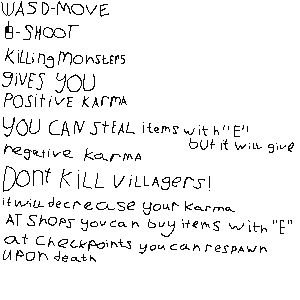 WASD-MOVE
-SHOOT
Killing Monsters
giVES YOU
POSITIVE KARMA
YOU CAN STEAL items with "E"
but it will give
negative karma
Dont KILL Villagers!
it will decrease your karma
AT Shops you can buy items with "E"
at Checkpoints you can respawn
upon death